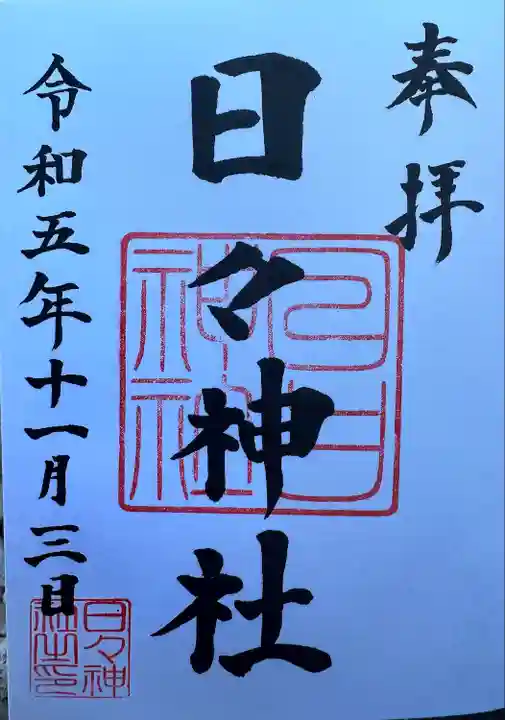 奉拝
日々神社
令和五年十一月三日
日日神社
日々神社之印